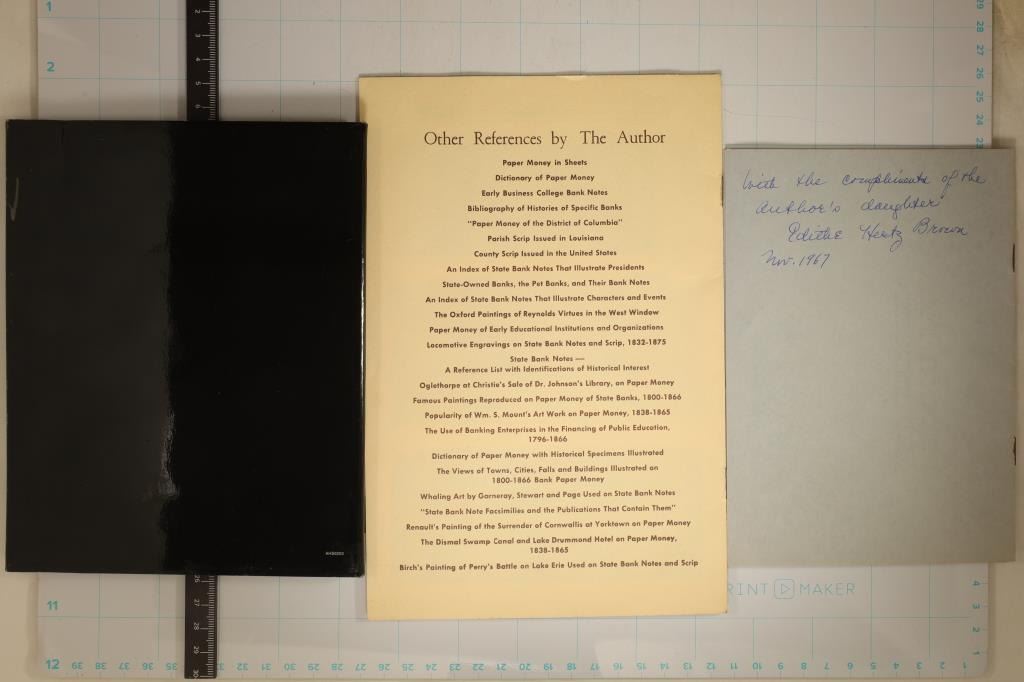 Other References by The Author
Paper Money in Sheets
Dictionary of Paper Money
Early Business College Bank Notes
Bibliography of Histories of Specific Banks
"Paper Money of the District of Columbia"
Parish Scrip Issued in Louisiana
County Scrip Issued in the United States
An Index of State Bank Notes That Illustrate Presidents
State-Owned Banks, the Pet Banks, and Their Bank Notes
An Index of State Bank Notes That Illustrate Characters and Events
The Oxford Paintings of Reynolds Virtues in the West Window
Paper Money of Early Educational Institutions and Organizations
Locomotive Engravings on State Bank Notes and Scrip, 1832-1875
State Bank Notes —
A Reference List with Identifications of Historical Interest
Oglethorpe at Christie's Sale of Dr. Johnson's Library, on Paper Money
Famous Paintings Reproduced on Paper Money of State Banks, 1800-1866
Popularity of Wm. S. Mount's Art Work on Paper Money, 1838-1865
The Use of Banking Enterprises in the Financing of Public Education,
1796-1866
Dictionary of Paper Money with Historical Specimens Illustrated
The Views of Towns, Cities, Falls and Buildings Illustrated on
1800-1866 Bank Paper Money
Whaling Art by Garneray, Stewart and Page Used on State Bank Notes
"State Bank Note Facsimilies and the Publications That Contain Them"
Renault's Painting of the Surrender of Cornwallis at Yorktown on Paper Money
The Dismal Swamp Canal and Lake Drummond Hotel on Paper Money,
1838-1865
Birch's Painting of Perry's Battle on Lake Erie Used on State Bank Notes and Scrip
With the compliments of the
author's daughter
Edithe Hertz Brown
Nov. 1967
RINT MAKER
1
2
11
12